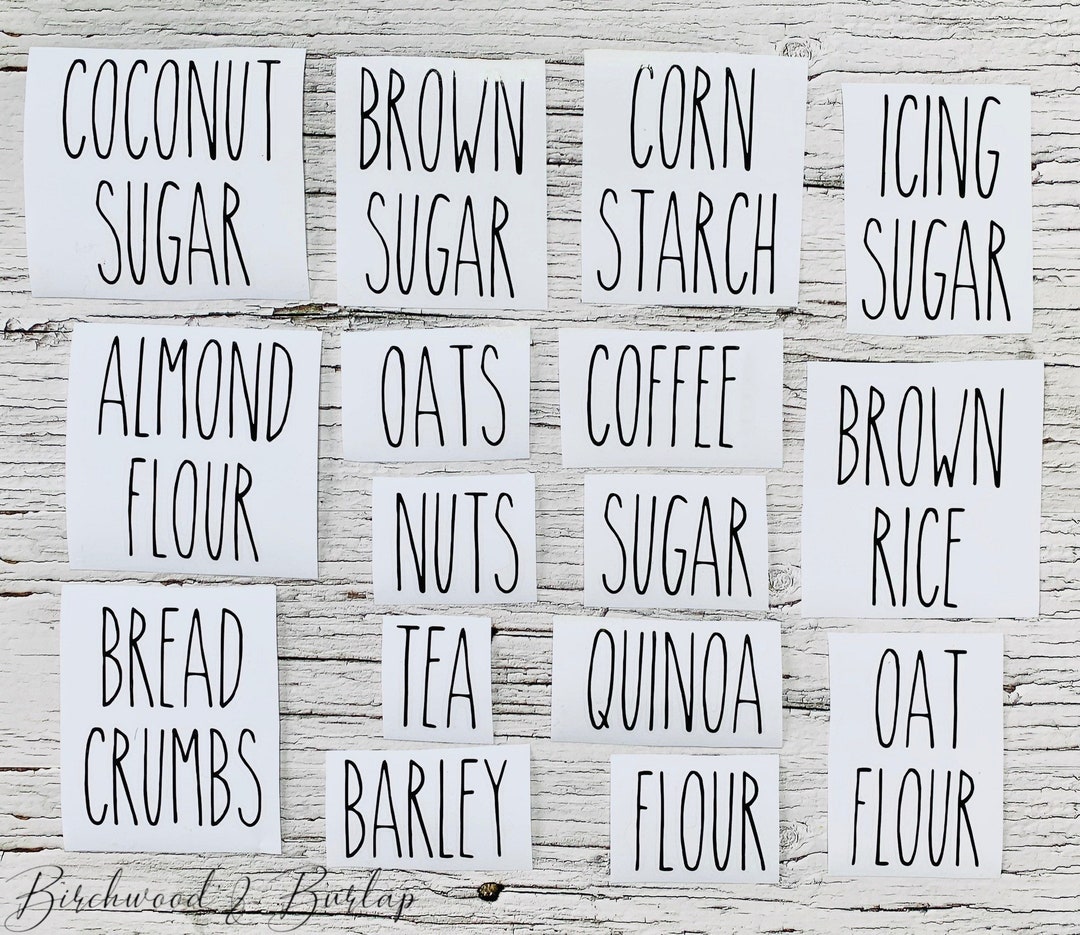 COCONUT
SUGAR
BROWN
SUGAR
CORN
STARCH
ICING
SUGAR
ALMOND
FLOUR
OATS
COFFEE
BROWN
RICE
NUTS
SUGAR
BREAD
CRUMBS
TEA
QUINOA
OAT
FLOUR
BARLEY
FLOUR
Birchwood & Burlap